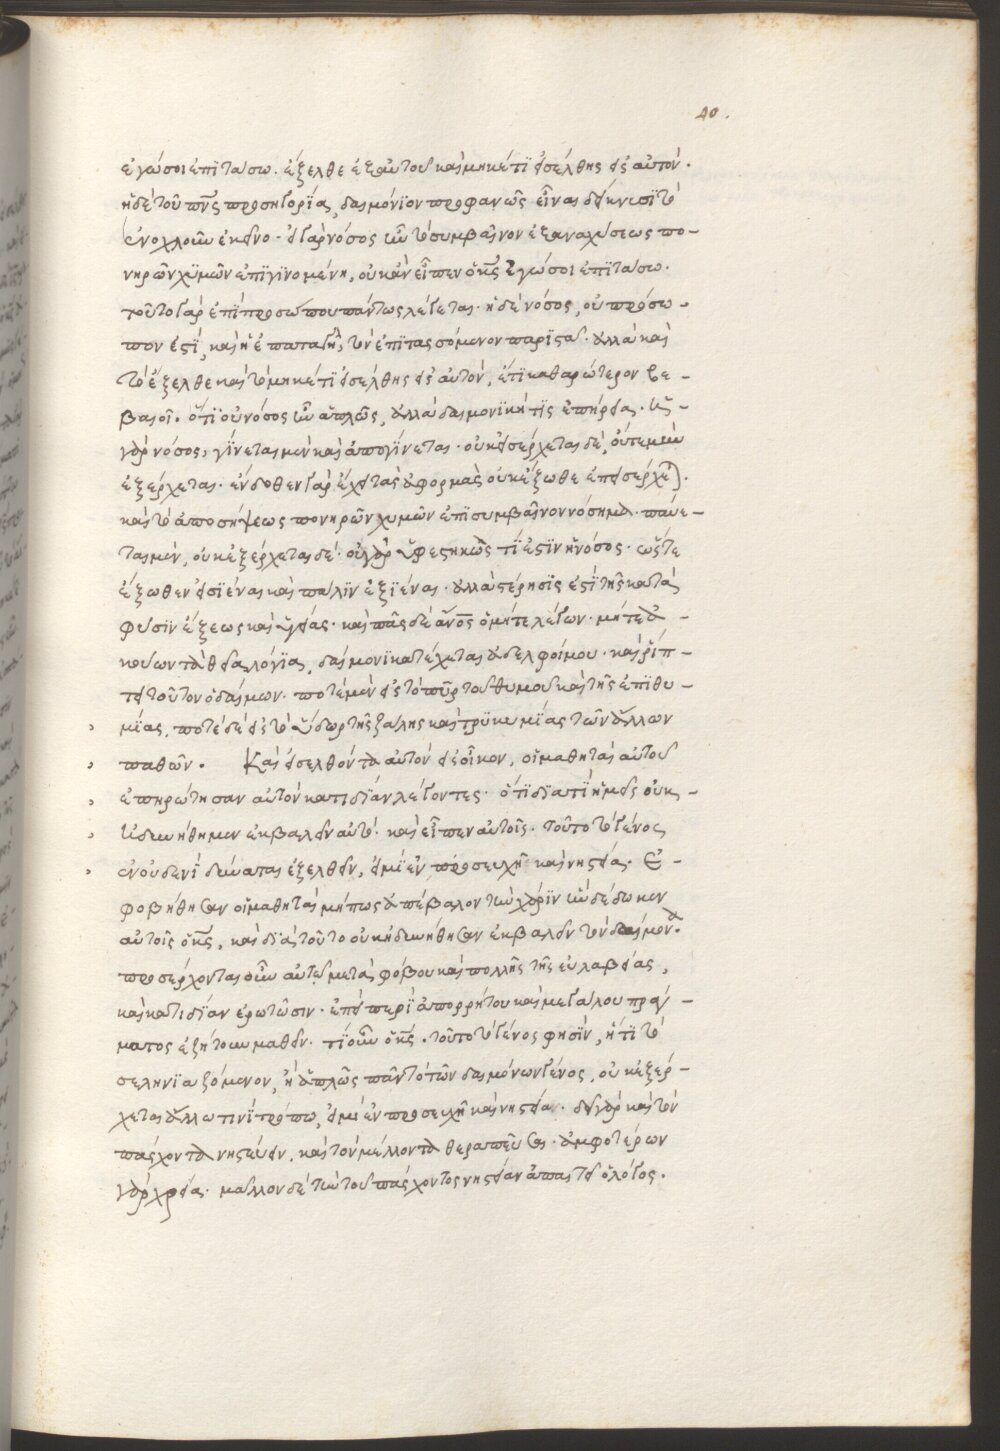 40.
ἐγώ σοι ἐπιτάσσω. ἔξελθε ἐξ αὐτοῦ καὶ μηκέτι εἰσέλθης εἰς αὐτόν.
ἡ δὲ τοῦ πνς προσηγορία, δαιμόνιον προφανῶς εἶναι δείκνυσι τὸ
ἐνοχλοῦν ἐκεῖνο. εἰ γὰρ νόσος ἦν τὸ συμβαῖνον ἐξ ἀναχύσεως πο-
νηρῶν χυμῶν ἐπιγινομένη, οὐκ ἂν εἶπεν ὁ κς ἐγώ σοι ἐπιτάσω.
τοῦτο γὰρ ἐπὶ προσώπου πάντως λέγεται. ἡ δὲ νόσος, οὐ πρόσω-
πον ἐστί, καὶ ἡ ἐπιταγὴ, τὸν ἐπιτασσόμενον παρίσησι. ἀλλὰ καὶ
τὸ ἔξελθε καὶ τὸ μηκέτι εἰσέλθης εἰς αὐτὸν, ἔτι καθαρώτερον βε-
βαιοῖ. ὅτι οὐ νόσος ἦν ἁπλῶς, ἀλλὰ δαιμονική τις ἐπήρεια. ἡ
γὰρ νόσος, γίνεται μὲν καὶ ἀπογίνεται. οὐκ εἰσέρχεται δὲ, οὔτε μὴν
ἐξέρχεται. ἔνδοθεν γὰρ ἔχει τὰς ἀφορμὰς οὐκ ἔξωθεν ἐπεισέρχεται.
καὶ τὸ ἀπὸ σήψεως πονηρῶν χυμῶν ἐπισυμβαῖνον νόσημα. παύε-
ται μὲν, οὐκ ἐξέρχεται δέ. οὐ γὰρ ὑφεστηκώς τί ἐστιν ἡ νόσος. ὥστε
ἔξωθεν εἰσιέναι καὶ πάλιν ἐξιέναι. ἀλλὰ στέρησις ἐστὶ τῆς κατὰ
φύσιν ἕξεως καὶ ὑγείας. καὶ πᾶς δὲ ἄνος ὁ μήτε λέγων. μήτε ἀ-
κούων τὰ θεῖα λόγια, δαίμονι κατέχεται ἀδελφοί μου. καὶ ῥίπ-
τει τοῦτον ὁ δαίμων. ποτὲ μὲν εἰς τὸ πῦρ τοῦ θυμοῦ καὶ τῆς ἐπιθυ-
μίας, ποτὲ δὲ εἰς τὸ ὕδωρ τῆς ζάλης καὶ τρικυμίας τῶν ἄλλων
παθῶν. Καὶ εἰσελθόντα αὐτὸν εἰς οἶκον, οἱ μαθηταὶ αὐτοῦ
ἐπηρώτησαν αὐτὸν κατιδίαν λέγοντες. ὅτι διατί ἡμεῖς οὐκ
ἠδυνήθημεν ἐκβαλεῖν αὐτό. καὶ εἶπεν αὐτοῖς. τοῦτο τὸ γένος
ἐν οὐδενὶ δύναται ἐξελθεῖν, εἰ μὴ ἐν προσευχῇ καὶ νηστείᾳ. Ἐ-
φοβήθησαν οἱ μαθηταὶ μήπως ἀπέβαλον τὴν χάριν ἣν δέδωκεν
αὐτοῖς ὁ κς, καὶ διὰ τοῦτο οὐκ ἠδυνήθησαν ἐκβαλεῖν τὸν δαίμονα.
προσέρχονται οὖν αὐτῷ μετὰ φόβου καὶ πολλῆς τῆς εὐλαβείας,
καὶ κατιδίαν ἐρωτῶσιν. ἐπεὶ περὶ ἀπορρήτου καὶ μεγάλου πράγ-
ματος ἐζήτουν μαθεῖν. τί οὖν ὁ κς. τοῦτο τὸ γένος φησὶν, ἤτι τὸ
σεληνιαζόμενον, ἢ ἁπλῶς πᾶν τὸ τῶν δαιμόνων γένος, οὐκ ἐξέρ-
χεται ἄλλω τινὶ τρόπω, εἰ μὴ ἐν προσευχῇ καὶ νηστείᾳ. δεῖ γὰρ καὶ τὸν
πάσχοντα νηστεύειν, καὶ τὸν μέλλοντα θεραπεῦσαι. ἀμφοτέρων
γὰρ χρεία. μᾶλλον δὲ τὴν τοῦ πάσχοντος νηστείαν ἀπαιτεῖ ὁ λόγος.